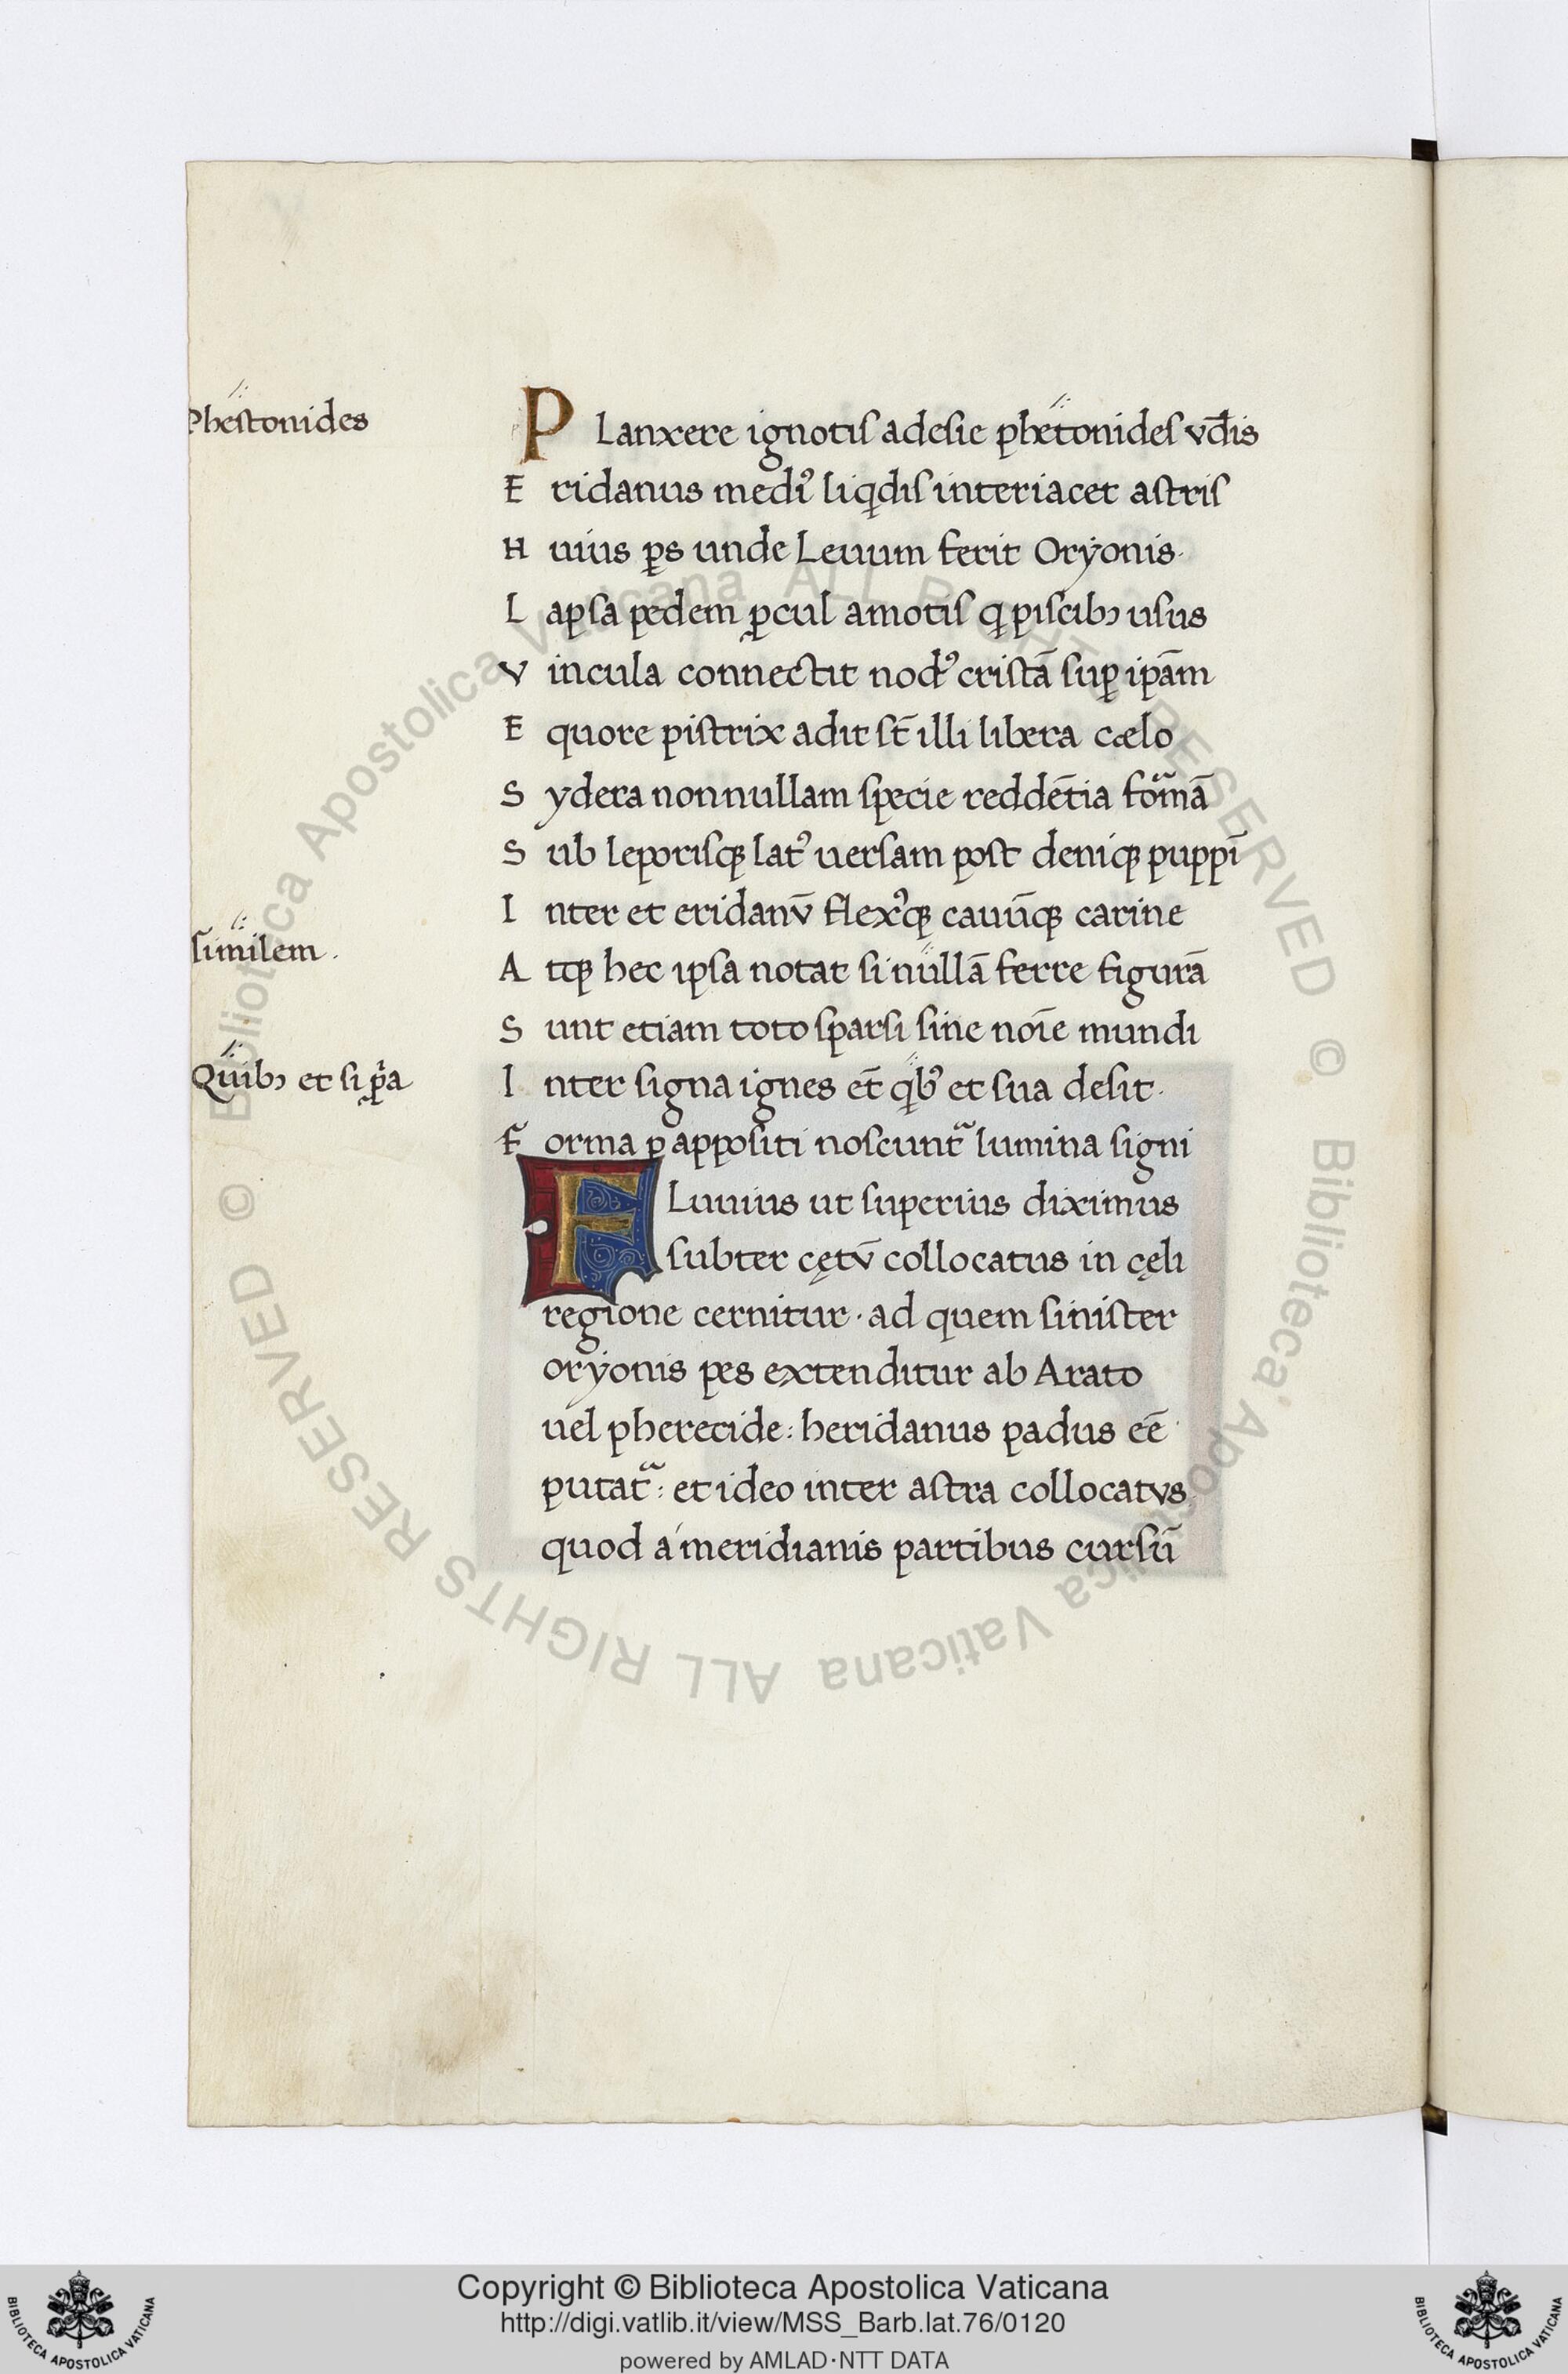 Phestonides
PLanxere ignotis adesie phetonides vdis
Eridanus mediꝰ liqdis interiacet astris
Huius ps unde Leuum ferit Oryonis.
Lapsa pedem ꝓcul amotis q piscibꝫ usus
Vincula connectit nodꝰ cristā suꝑ ipām
Equore pistrix adit st̄ illi libera cælo
Sydera non nullam specie reddētia fomā
Sub leporisqꝫ latꝰ uersam post deniqꝫ puppī
Inter et eridanv̄ flexꝰqꝫ cauūqꝫ carine
similem.
Atqꝫ hec ipsa notat si nullā ferre figurā
Sunt etiam toto sparsi sine noīe mundi
Quibꝫ et si ꝓpa
Inter signa ignes et̄ qbꝰ et sua desit.
Forma p appositi noscunt lumina signi
FLuuius ut superius diximus
subter cętv̄ collocatus in cęli
regione cernitur · ad quem sinister
oryonis pes extenditur ab Arato
uel pherecide: heridanus padus eē
putat: et ideo inter astra collocatvs
quod a meridianis partibus cursū
© Biblioteca Apostolica Vaticana ALL RIGHTS RESERVED © Biblioteca Apostolica Vaticana ALL RIGHTS RESERVED
Copyright © Biblioteca Apostolica Vaticana
http://digi.vatlib.it/view/MSS_Barb.lat.76/0120
powered by AMLAD·NTT DATA
BIBLIOTECA APOSTOLICA VATICANA
BIBLIOTECA APOSTOLICA VATICANA